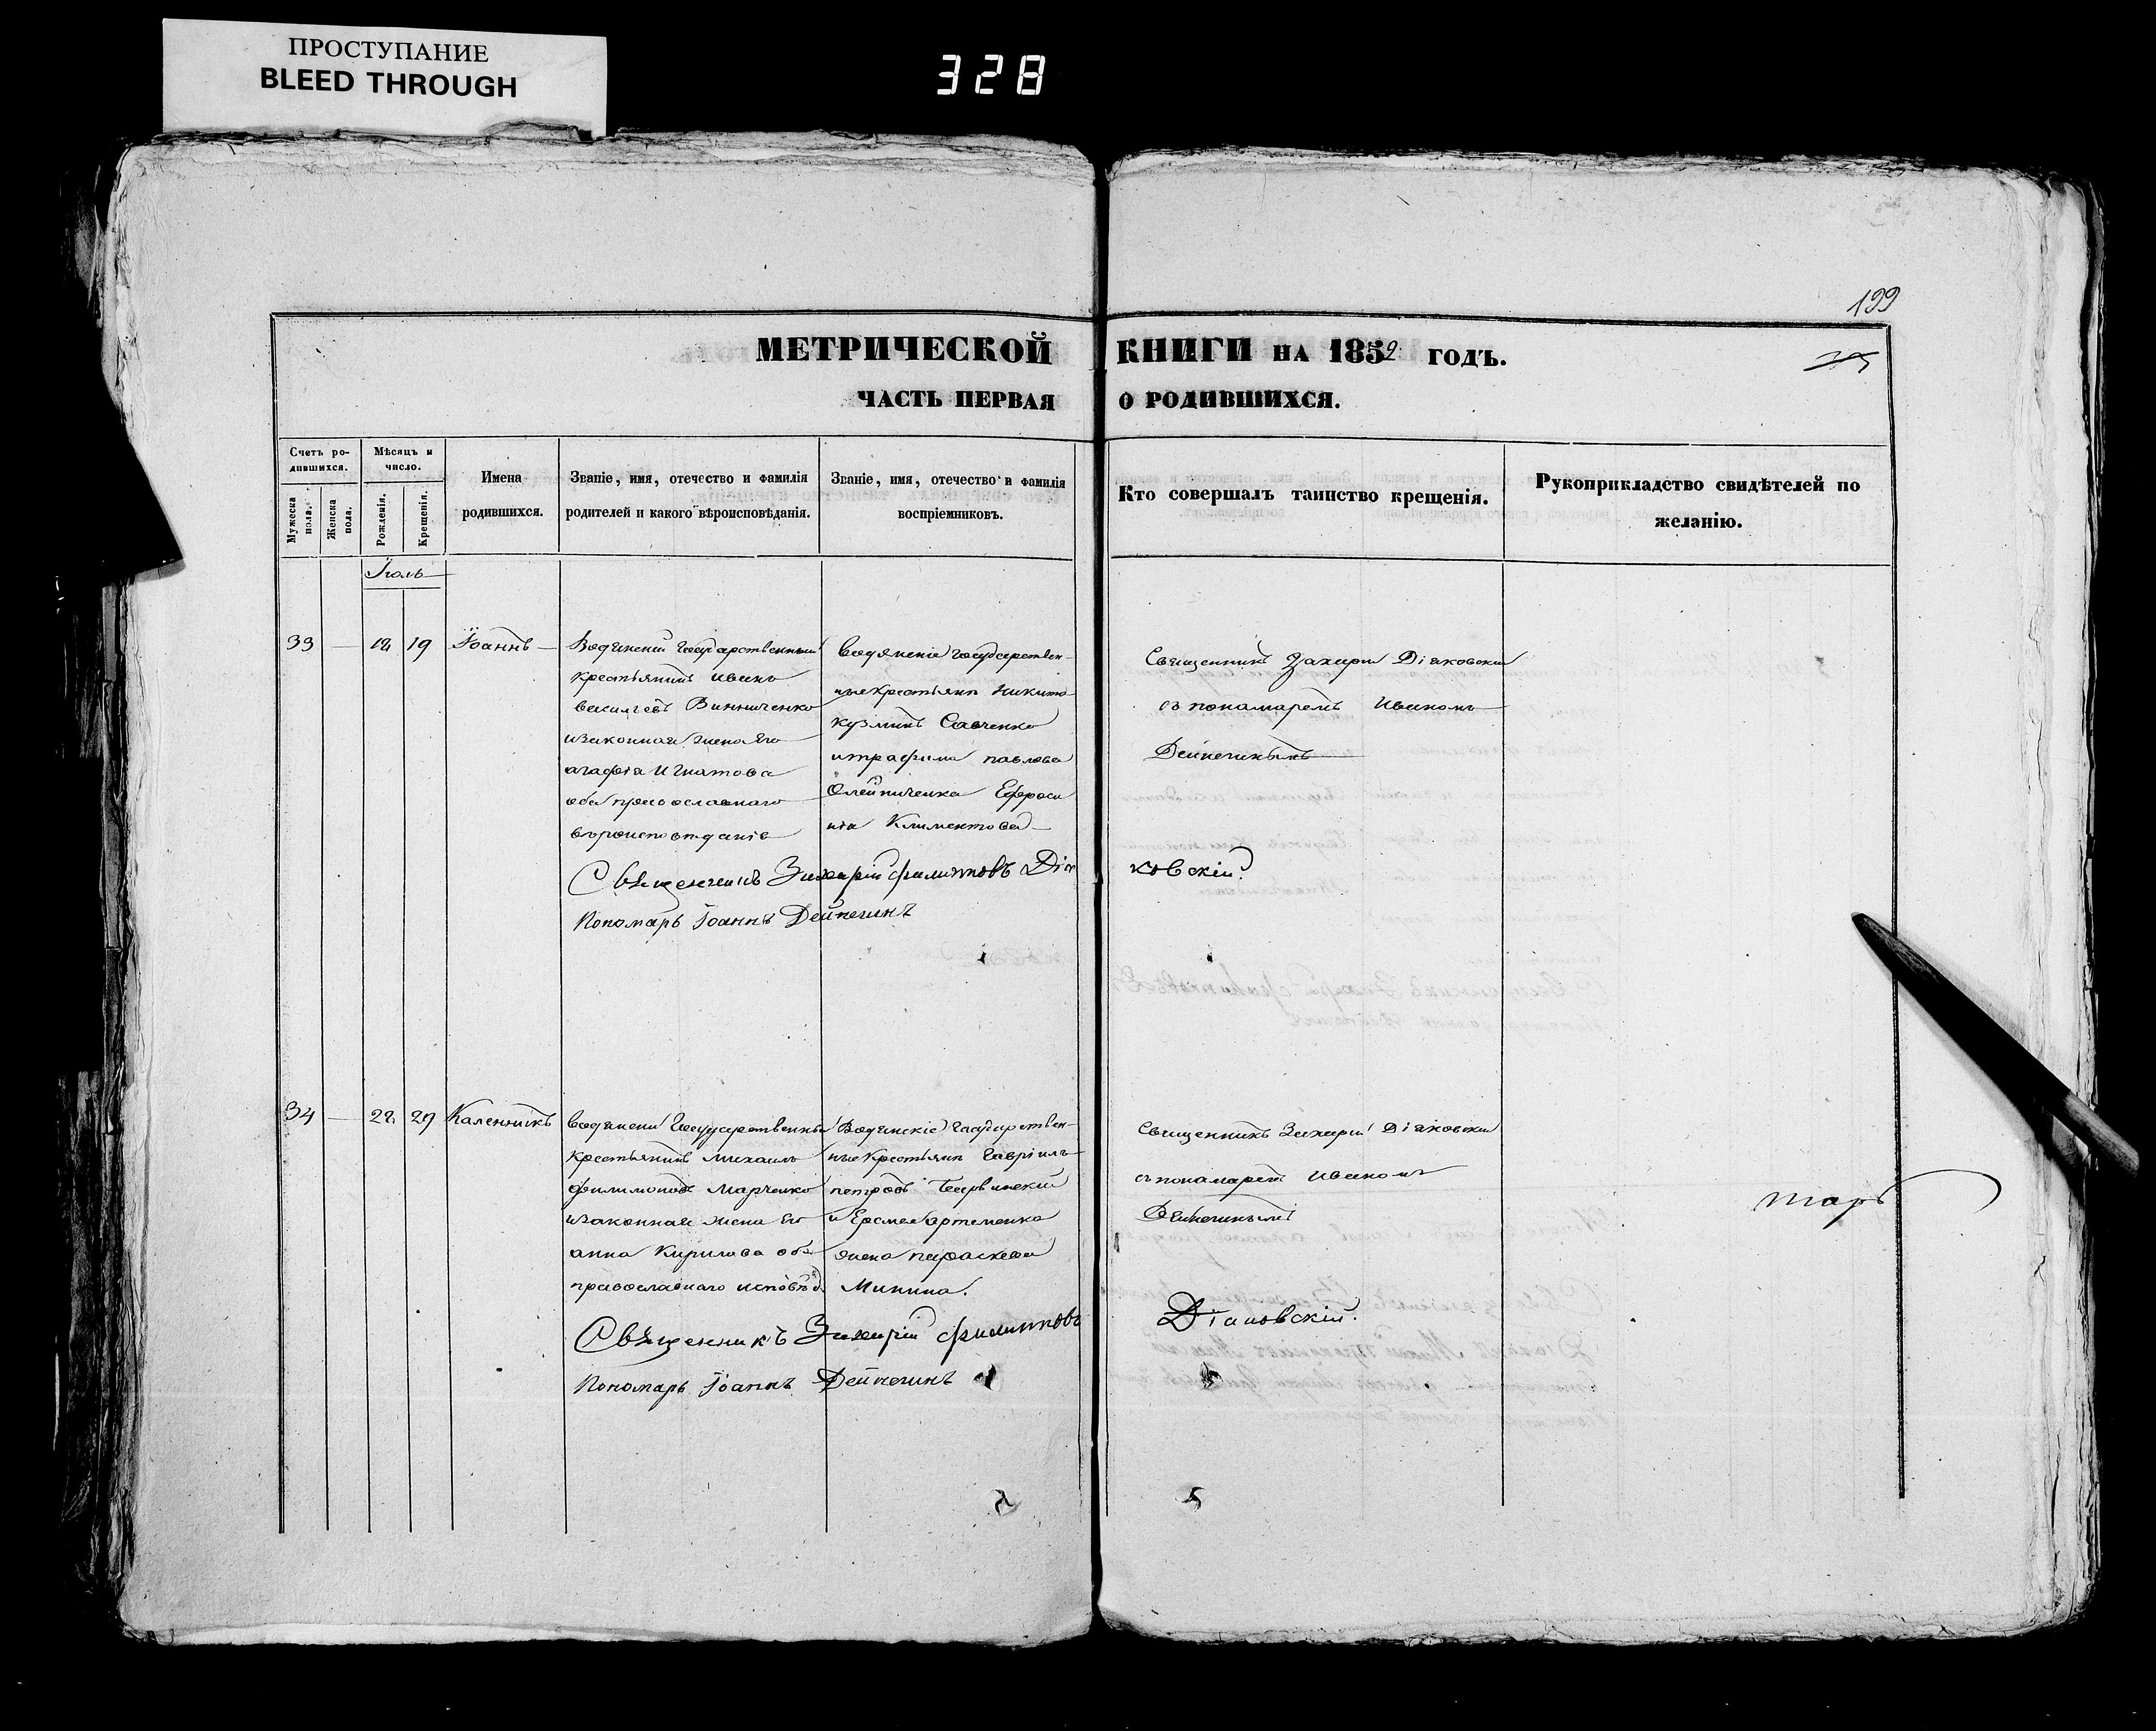 ПРОСТУПАНИЕ
BLEED THROUGH
328
199
МЕТРИЧЕСКОЙ КНИГИ НА 1852 ГОДЪ.
ЧАСТЬ ПЕРВАЯ О РОДИВШИХСЯ.
Счетъ ро-
дившихся.
Мужеска
пола.
Женска
пола.
Мѣсяцъ и
число.
Рожденія.
Крещенія.
Имена
родившихся.
Званіе, имя, отечество и фамилія
родителей и какого вѣроисповѣданія.
Званіе, имя, отечество и фамилія
воспріемниковъ.
Кто совершалъ таинство крещенія.
Рукоприкладство свидѣтелей по
желанію.
Іюль
33 — 19 Іоаннъ
Государственный
крестьянинъ Иванъ
Винниченко
изаконная жена его
агафія Игнатова
оба православнаго
вѣроисповѣданія
ные крестьяни Никита
кузминъ Савченко
павлова
Олейниченка Ефроси
нія Климентова
Священникъ Захарій Діяковскій
съ пономаремъ Иваномъ
Дейнекинымъ
Священникъ Захарій филиповъ Діяковскій.
Пономарь Іоаннъ Дейнекинъ
34 — Каленникъ
Государственный
крестьянинъ Михаилъ
филимоновъ Марченко
изаконная жена его
анна Кирилова оба
православнаго исповѣд.
Водянскіе государствен-
ные Крестьяни Гавріилъ
петровъ
артеменка
жена параскева
Минина.
Священникъ Захарій Діяковскій
съ пономаремъ Иваномъ
Дейнекинымъ
Священникъ Захарій филиповъ Діяковскій.
Пономарь Іоаннъ Дейнекинъ
марь